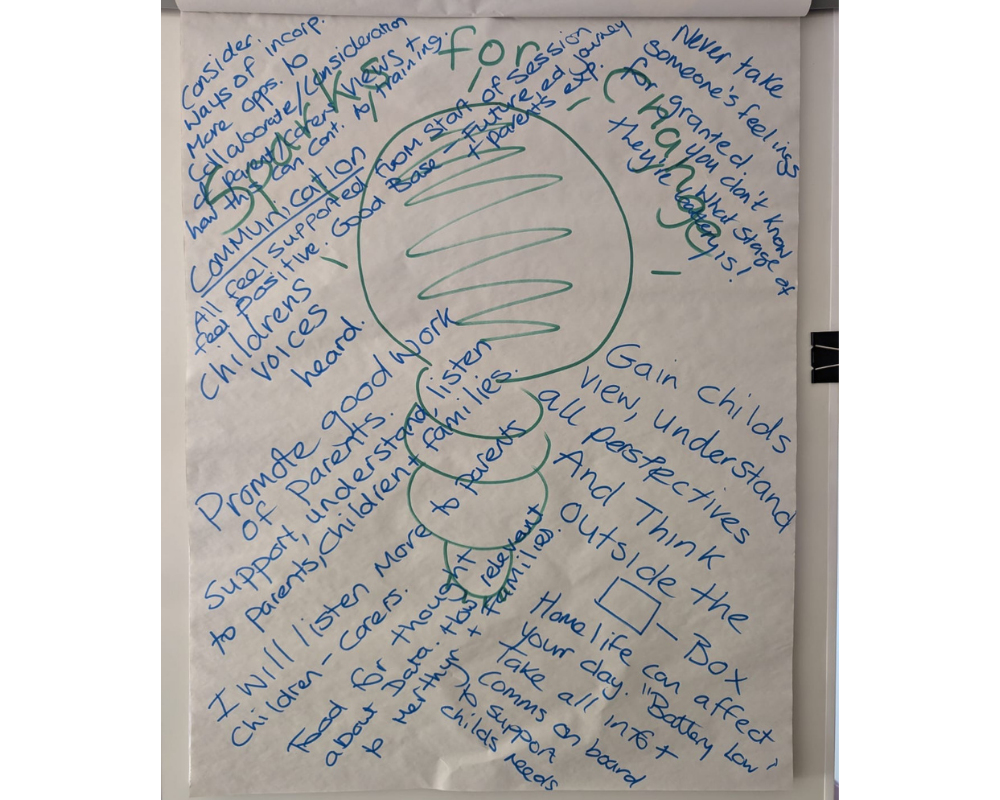 Sparks for Change
Consider.
Ways of incorp.
More opps. to
collaborate/consideration
of parent/carer views +
how this can cont. to training.
Communication
All feel supported from start of session
feel positive. Good Base - Future ed journey
+ parents exp.
Childrens
voices
heard.
Never take
someone's feelings
for granted
you don't know
what stage of
they're battery is!
Promote good work
of parents.
Support, understand, listen
to parents, children + families.
I will listen more to parents
children - carers.
Food for thought
about Data. How relevant
to Merthyr + families.
Gain childs
view, understand
all perspectives
And Think
outside the
Box
Home life can affect
your day. "Battery Low"
Take all info +
Comms on board
to support
childs needs